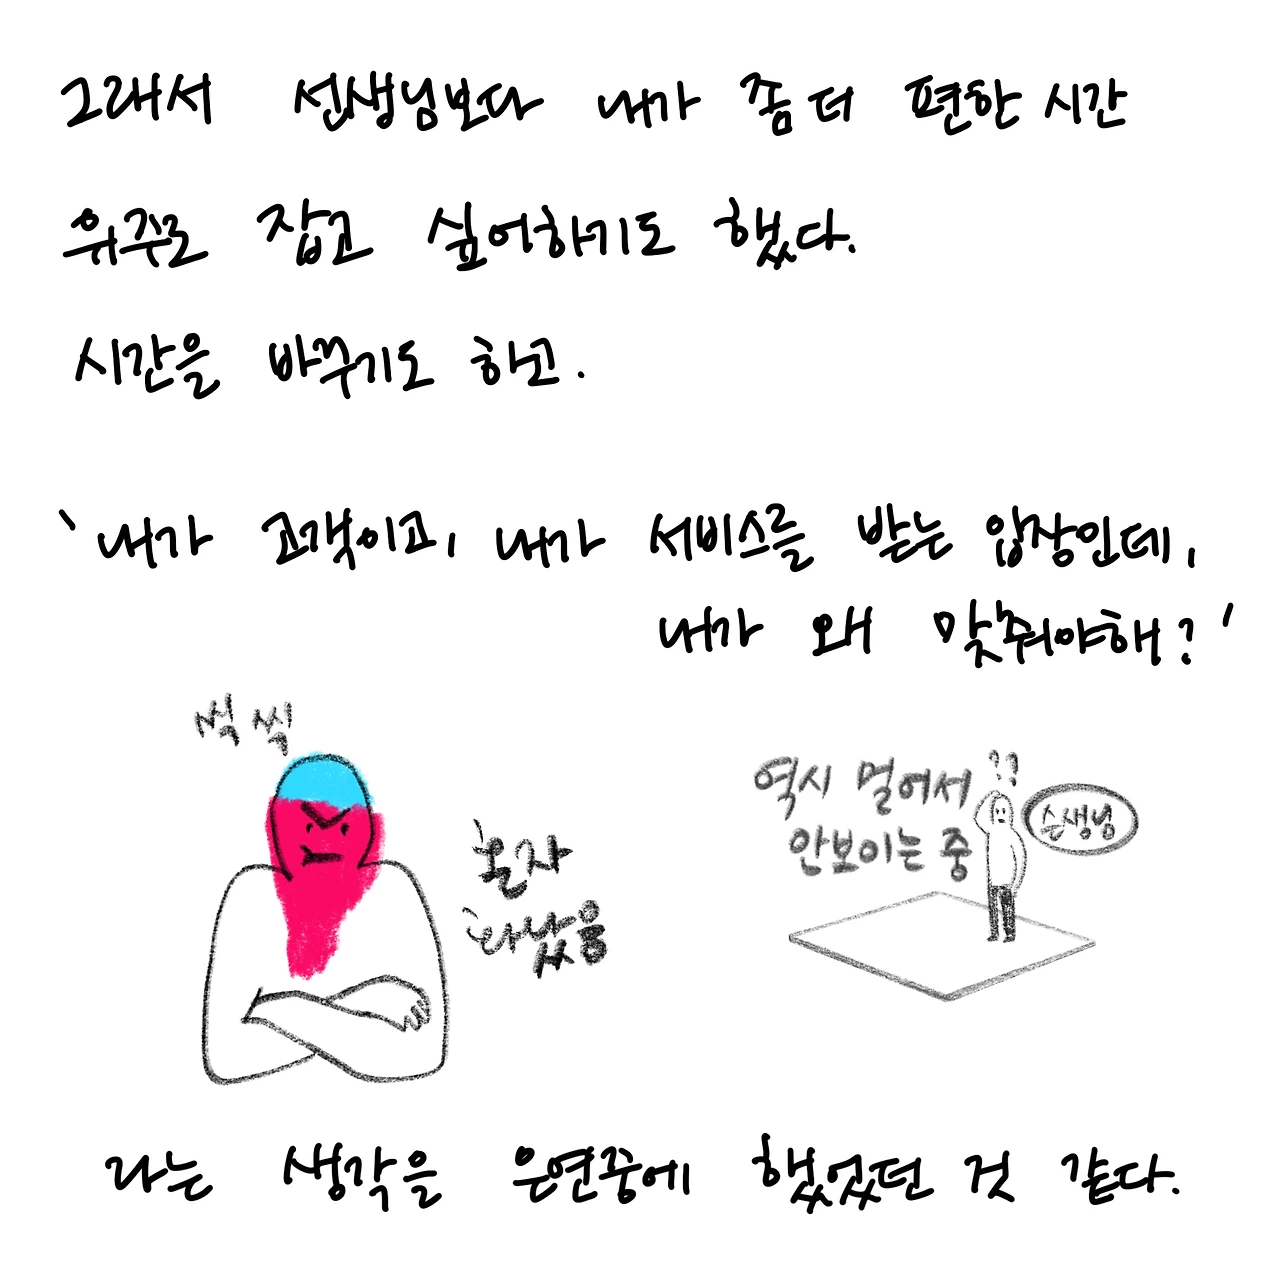 그래서 선생님보다 내가 좀 더 편한 시간
위주로 잡고 싶어하기도 했다.
시간을 바꾸기도 하고.
'내가 고객이고, 내가 서비스를 받는 입장인데,
내가 왜 맞춰야해?'
씩 씩
혼자
화났음
역시 멀어서
안보이는 중
??
슨생님
라는 생각을 은연중에 했었던 것 같다.